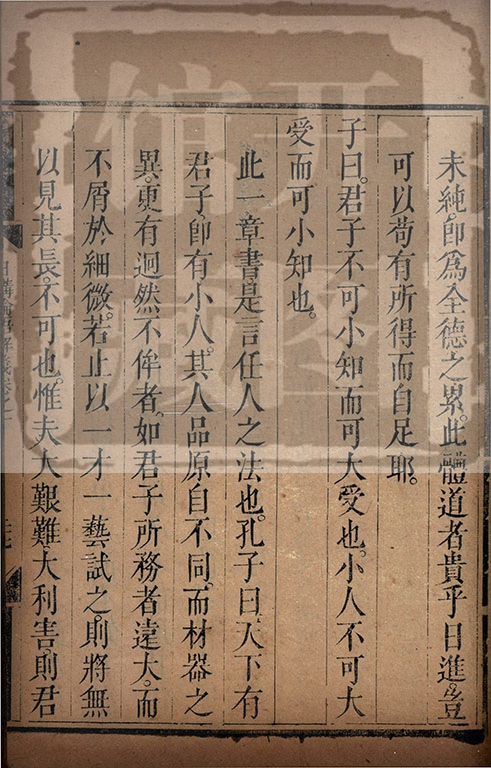 未純即為全德之累此體道者貴乎日進豈
可以苟有所得而自足耶
子曰君子不可小知而可大受也小人不可大
受而可小知也
此一章書是言任人之法也孔子曰天下有
君子即有小人其人品原自不同而材器之
異更有迥然不侔者如君子所務者遠大而
不屑於細微若止以一才一藝試之則將無
以見其長不可也惟夫大艱難大利害則君